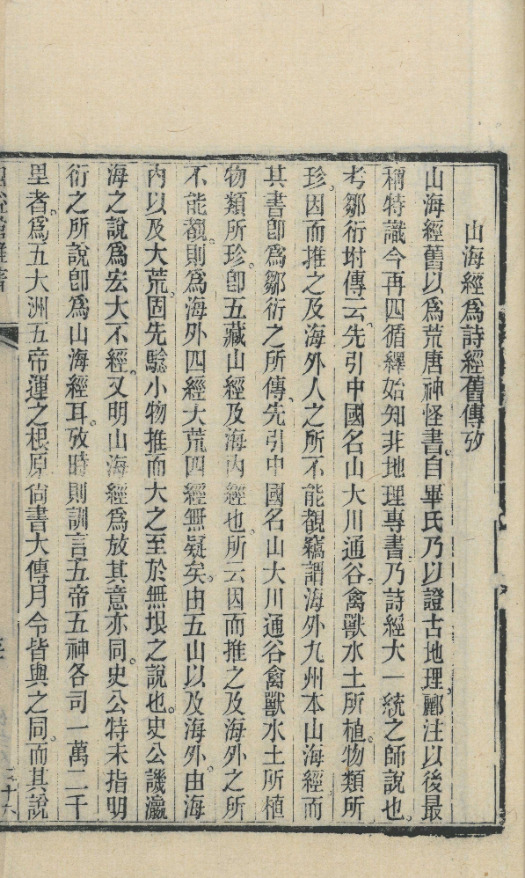 山海經爲詩經舊傳攷
山海經舊以爲荒唐神怪書。自畢氏乃以證古地理。酈注以後最
稱特識今再四循繹始知非地理專書。乃詩經大一統之師說也。
考鄒衍坿傳云。先引中國名山大川通谷。禽獸水土所植。物類所
珍。因而推之及海外人之所不能覩。竊謂海外九州本山海經而
其書卽爲鄒衍之所傳。先引中國名山大川通谷禽獸水土所植
物類所珍。卽五藏山經及海內經也。所云因而推之及海外之所
不能覩。則爲海外四經大荒四經無疑矣。由五山以及海外。由海
內以及大荒。固先驗小物推而大之至於無垠之說也。史公譏瀛
海之說爲宏大不經。又明山海經爲放其意亦同。史公特未指明
衍之所說卽爲山海經耳。攷時則訓言五帝五神各司一萬二千
里者。爲五大洲五帝運之根原。尙書大傳月令皆與之同。而其說